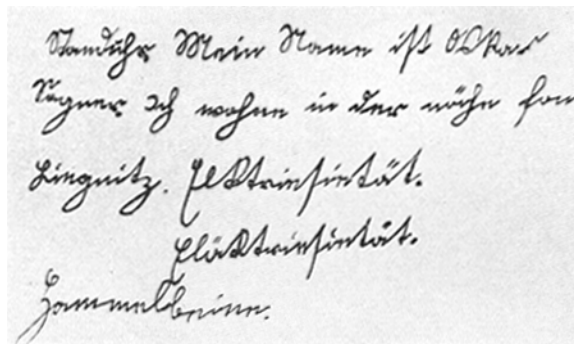 Standuhr Mein Name ist Oskar
Sogner Ich wohne in der nähe fon
Liegnitz. Elktriesietät.
Eläktriesietät.
Hammelbeine.